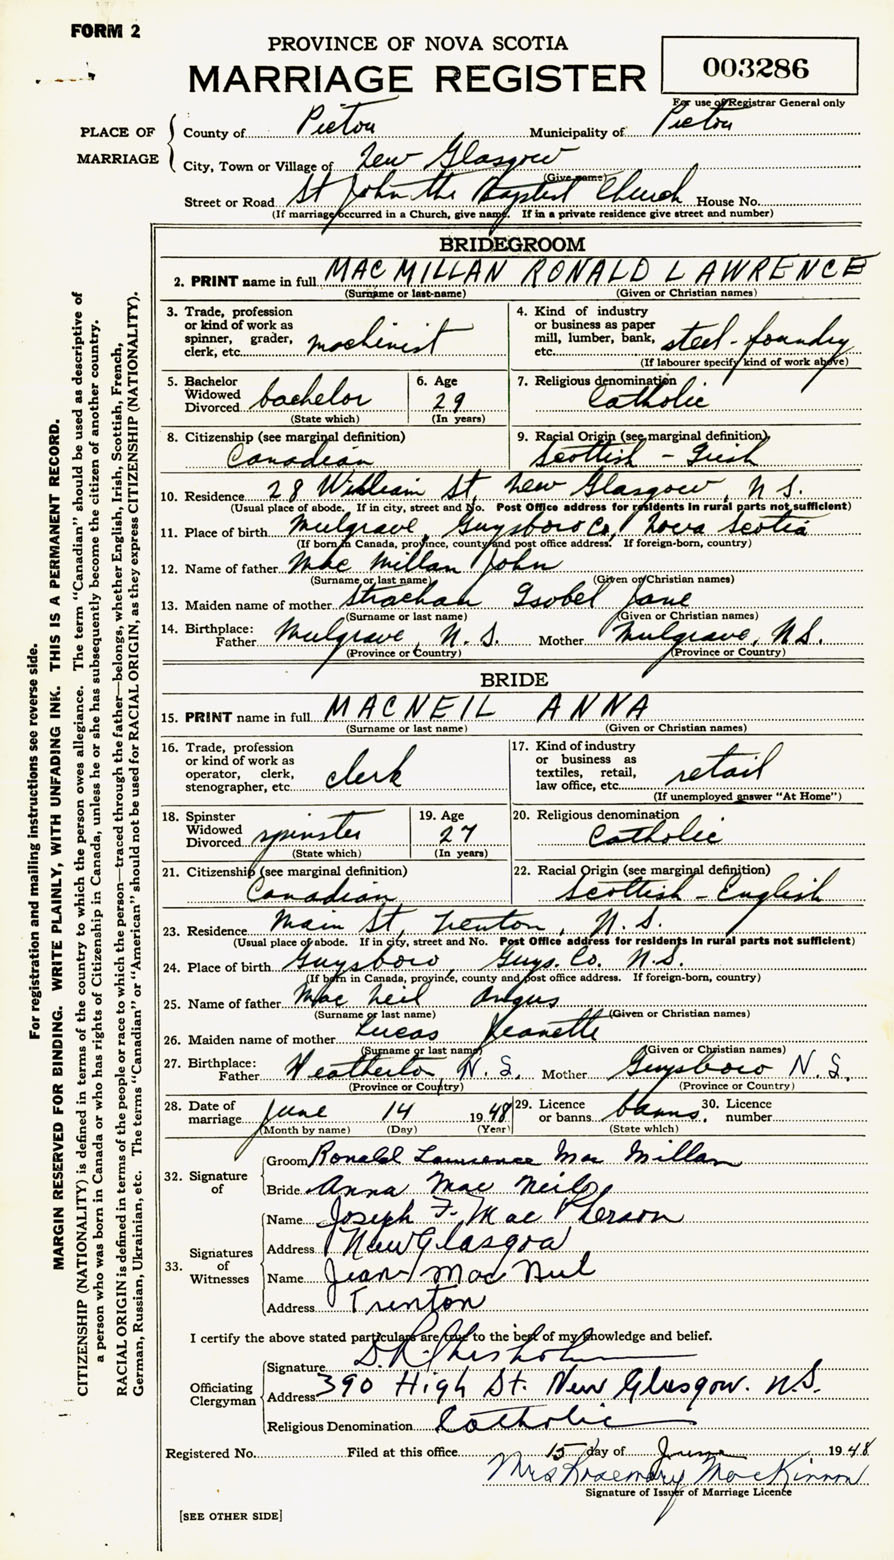 FORM 2
PROVINCE OF NOVA SCOTIA
MARRIAGE REGISTER
003286
For use of Registrar General only
PLACE OF MARRIAGE
County of Pictou Municipality of Pictou
City, Town or Village of New Glasgow
(Give name)
Street or Road St John the Baptist Church House No.
(If marriage occurred in a Church, give name. If in a private residence give street and number)
BRIDEGROOM
2. PRINT name in full MACMILLAN RONALD LAWRENCE
(Surname or last-name) (Given or Christian names)
3. Trade, profession or kind of work as spinner, grader, clerk, etc. machinist
4. Kind of industry or business as paper mill, lumber, bank, etc. steel-foundry
(If labourer specify kind of work above)
5. Bachelor Widowed Divorced bachelor
(State which)
6. Age 29
(In years)
7. Religious denomination Catholic
8. Citizenship (see marginal definition) Canadian
9. Racial Origin (see marginal definition) Scottish - Irish
10. Residence 28 William St, New Glasgow, N S.
(Usual place of abode. If in city, street and No. Post Office address for residents in rural parts not sufficient)
11. Place of birth Mulgrave, Guysboro Co, Nova Scotia
(If born in Canada, province, county and post office address. If foreign-born, country)
12. Name of father Mac Millan John
(Surname or last name) (Given or Christian names)
13. Maiden name of mother Strachan Isobel Jane
(Surname or last name) (Given or Christian names)
14. Birthplace: Father Mulgrave, N. S. Mother Mulgrave, N.S.
(Province or Country) (Province or Country)
BRIDE
15. PRINT name in full MACNEIL ANNA
(Surname or last name) (Given or Christian names)
16. Trade, profession or kind of work as operator, clerk, stenographer, etc. clerk
17. Kind of industry or business as textiles, retail, law office, etc. retail
(If unemployed answer "At Home")
18. Spinster Widowed Divorced spinster
(State which)
19. Age 27
(In years)
20. Religious denomination Catholic
21. Citizenship (see marginal definition) Canadian
22. Racial Origin (see marginal definition) Scottish - English
23. Residence Main St, Trenton, N. S.
(Usual place of abode. If in city, street and No. Post Office address for residents in rural parts not sufficient)
24. Place of birth Guysboro, Guys. Co. N.S.
(If born in Canada, province, county and post office address. If foreign-born, country)
25. Name of father Mac Neil Angus
(Surname or last name) (Given or Christian names)
26. Maiden name of mother Lucas Jeanette
(Surname or last name) (Given or Christian names)
27. Birthplace: Father N. S. Mother Guysboro N. S.
(Province or Country) (Province or Country)
28. Date of marriage June 14 1948
(Month by name) (Day) (Year)
29. Licence or banns banns
(State which)
30. Licence number
32. Signature of
Groom Ronald Lawrence Mac Millan
Bride Anna Mac Neil
33. Signatures of Witnesses
Name Joseph F. Mac Pherson
Address New Glasgow
Name Jean Mac Neil
Address Trenton
I certify the above stated particulars are true to the best of my knowledge and belief.
Officiating Clergyman
Signature D.R. Chisholm
Address 390 High St. New Glasgow. N.S.
Religious Denomination Catholic
Registered No. Filed at this office 15 day of June 1948
Mrs Rosemary MacKinnon
Signature of Issuer of Marriage Licence
[SEE OTHER SIDE]
For registration and mailing instructions see reverse side.
MARGIN RESERVED FOR BINDING. WRITE PLAINLY, WITH UNFADING INK. THIS IS A PERMANENT RECORD.
CITIZENSHIP (NATIONALITY) is defined in terms of the country to which the person owes allegiance. The term "Canadian" should be used as descriptive of
a person who was born in Canada or who has rights of Citizenship in Canada, unless he or she has subsequently become the citizen of another country.
RACIAL ORIGIN is defined in terms of the people or race to which the person—traced through the father—belongs, whether English, Irish, Scottish, French,
German, Russian, Ukrainian, etc. The terms "Canadian" or "American" should not be used for RACIAL ORIGIN, as they express CITIZENSHIP (NATIONALITY).